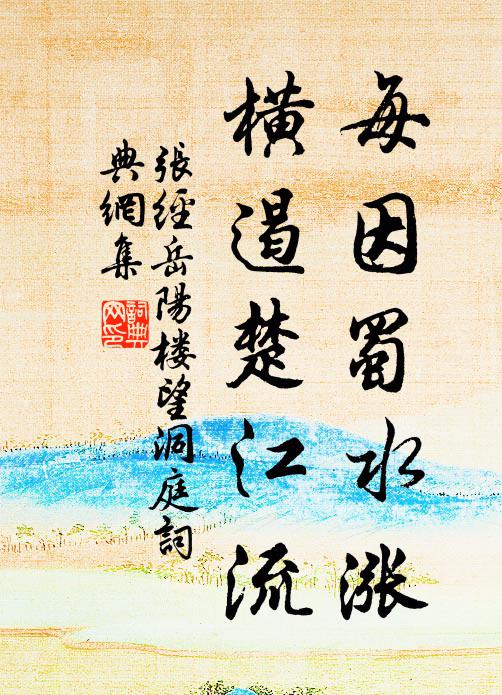 每因蜀水漲
橫遏楚江流
張經岳陽樓望洞庭詞
典網集
詞典
网印